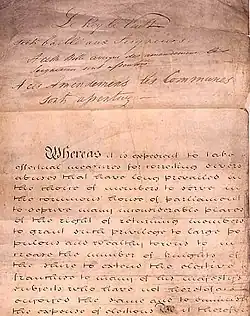 Soit baillé aux Seigneurs
A cette Bille avecque des amendemens les
Seigneurs sont assentus
A ces Amendemens les Communes
sont assentus
Whereas it is expedient to take
effectual measures for correcting divers
abuses that have long prevailed in
the choice of members to serve in
the commons house of parliament
to deprive many inconsiderable places
of the right of returning members
to grant such privilege to large po
pulous and wealthy towns to in
crease the number of knights of
the shire to extend the elective
franchise to many of his majesty's
subjects who have not heretofore
enjoyed the same and to diminish
the expense of elections Be it therefore